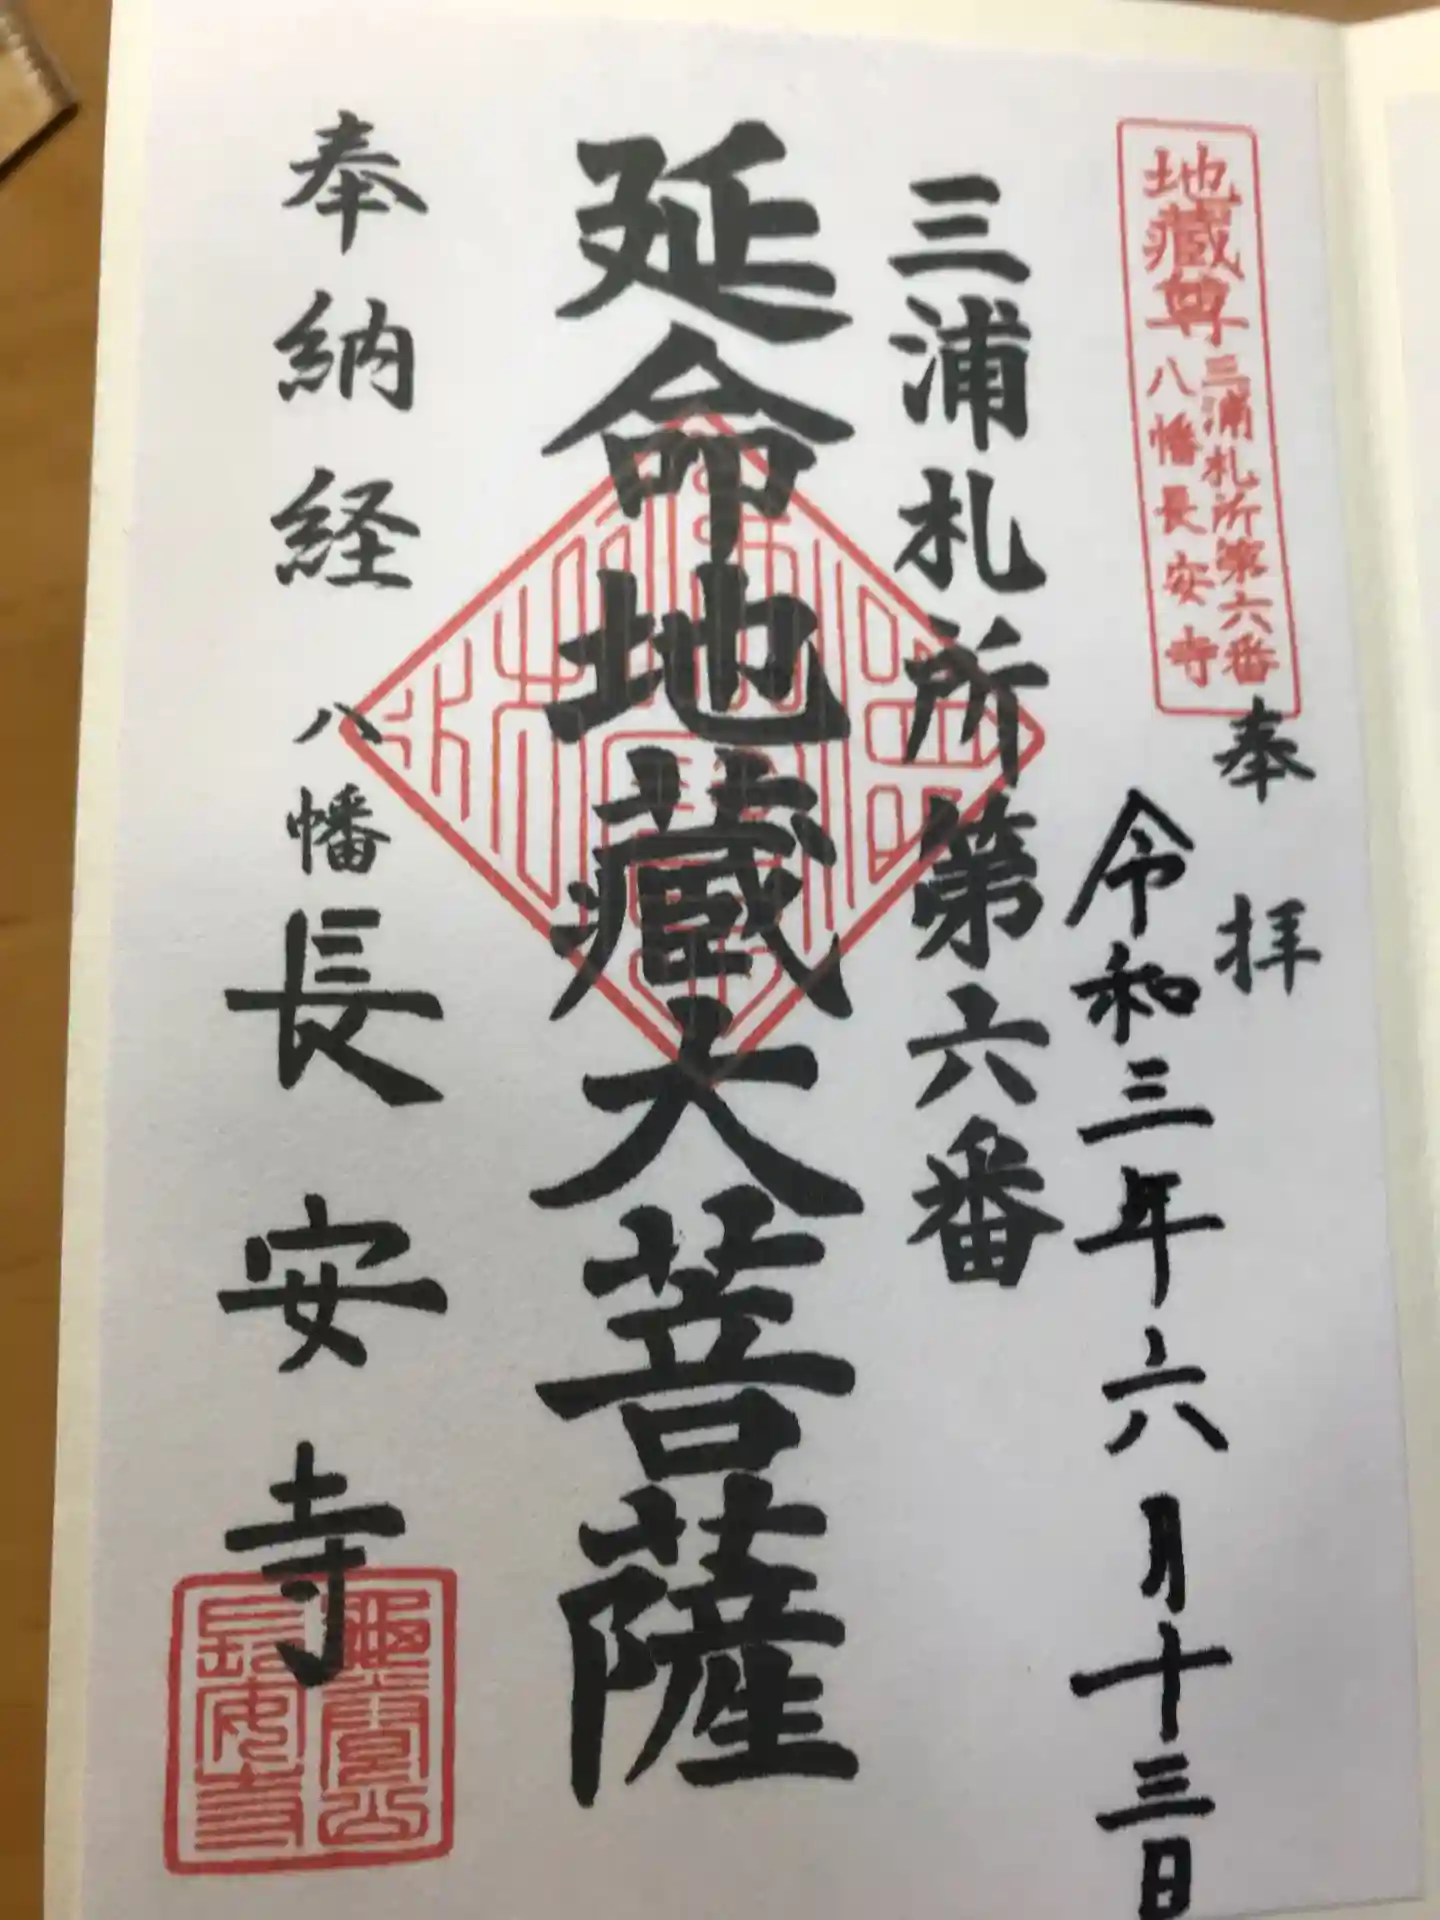 地藏尊
三浦札所第六番
八幡長安寺
奉拝
令和三年六月十三日
三浦札所第六番
延命地藏大菩薩
奉納経
八幡長安寺